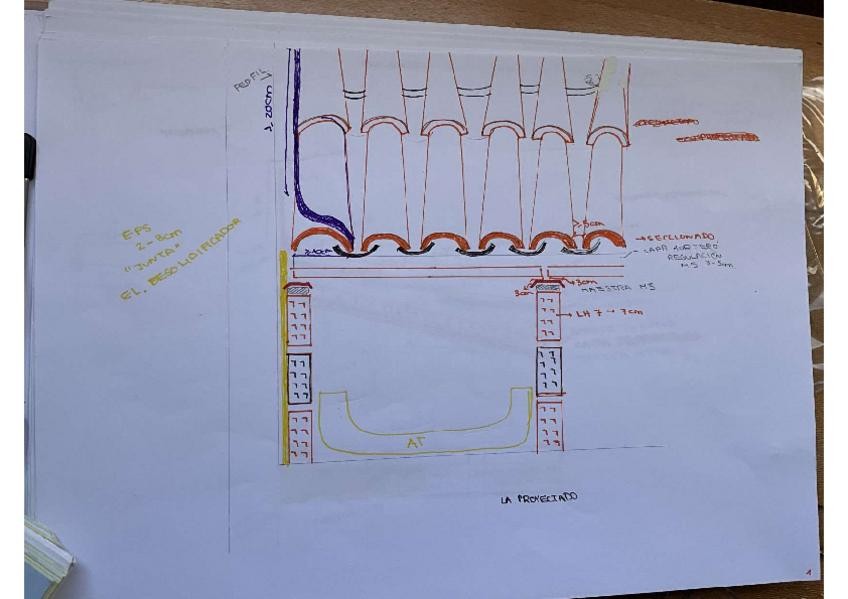 PERFIL
> 20cm
EPS
2-3cm
"JUNTA"
EL. DESOLIDIFICADOR
> 5cm
→ SECCIONADO
CAPA MORTERO
REGULACIÓN
M5 2-3cm
3cm
3cm
MAESTRA M5
→ LH 7 → 7cm
AT
LA PROYECTADO
1